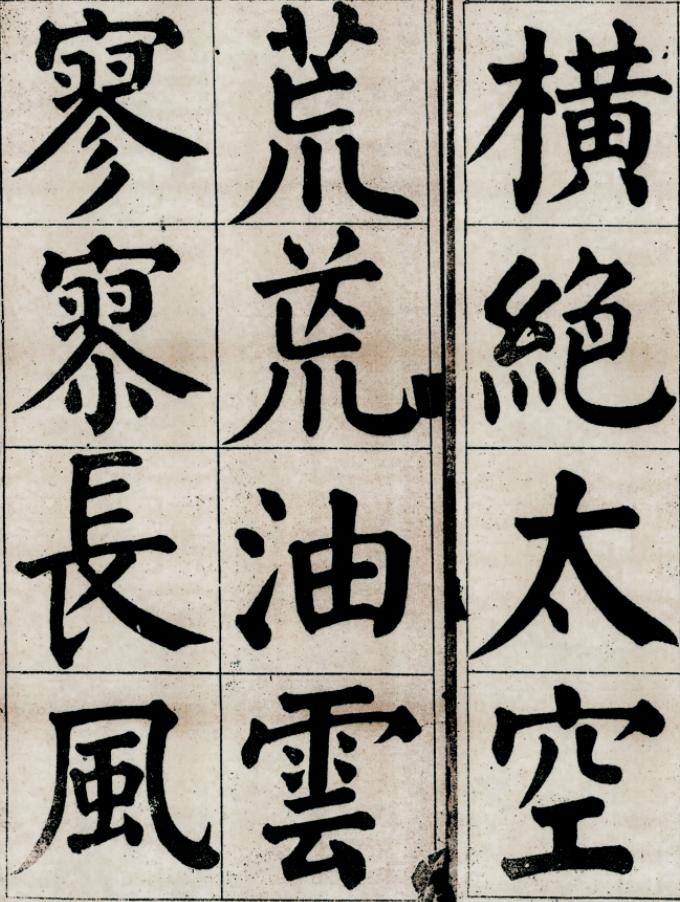 橫絕太空
荒荒油雲
寥寥長風